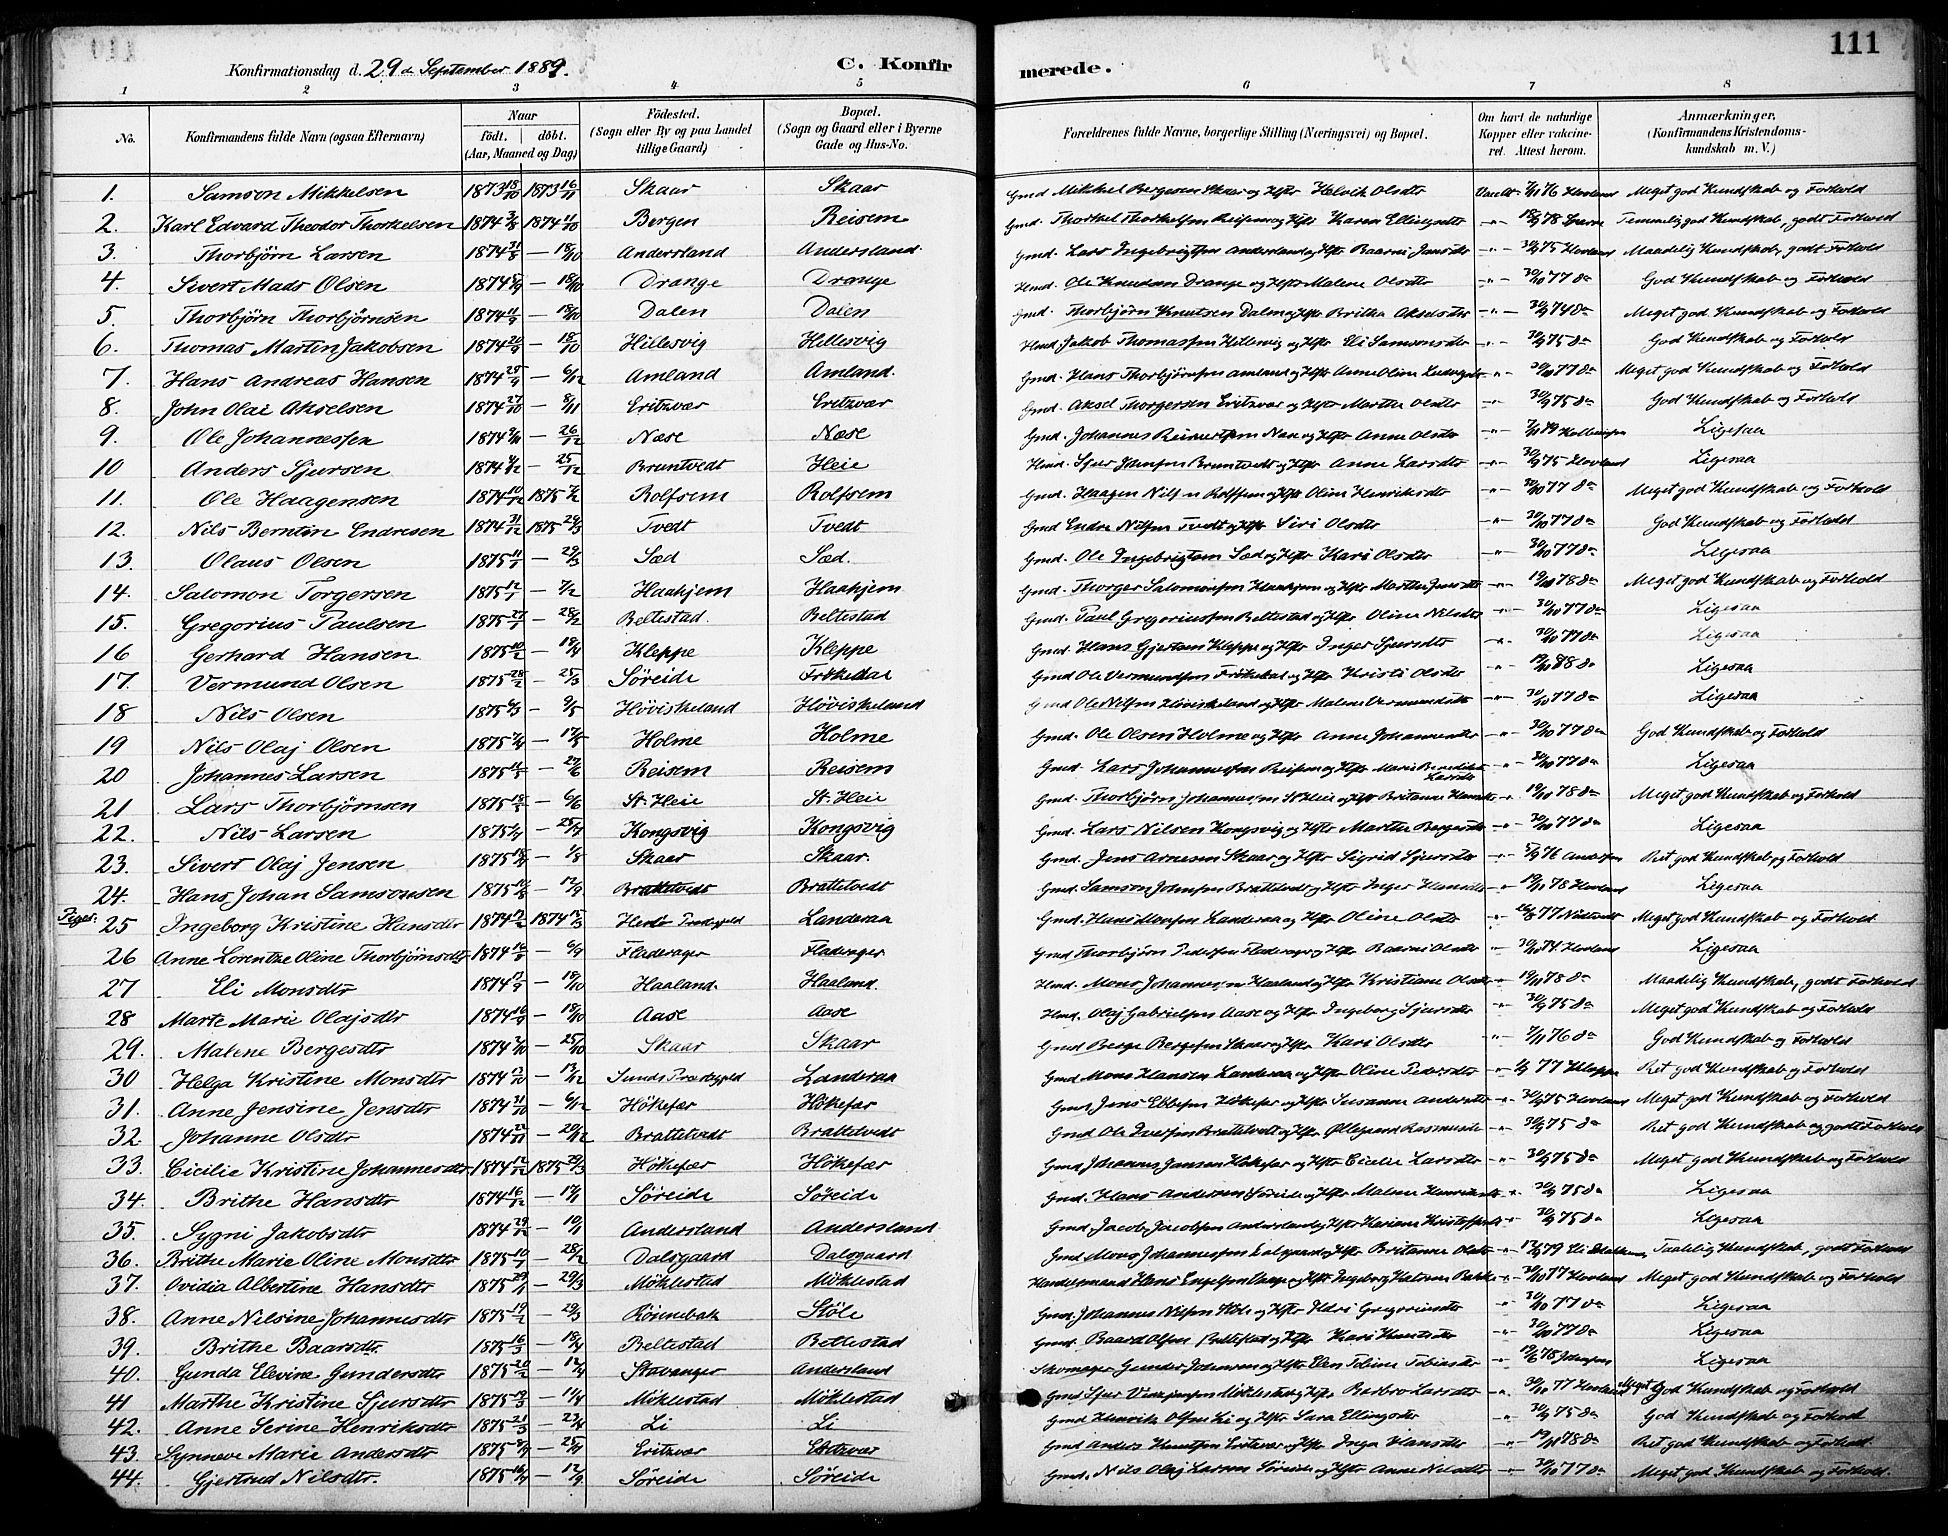 111
Konfirmationsdag d. 29de September 1889. C. Konfir merede.
1 2 3 4 5 6 7 8
No. Konfirmandens fulde Navn (ogsaa Efternavn) Naar født. døbt. (Aar, Maaned og Dag) Fødested. (Sogn eller By og paa Landet tillige Gaard) Bopæl. (Sogn og Gaard eller i Byerne Gade og Hus-No. Forældrenes fulde Navne, borgerlige Stilling (Næringsvei) og Bopæl. Om havt de naturlige Kopper eller vakcineret. Attest herom. Anmærkninger, (Konfirmandens Kristendomskundskab m. V.)
1. Samson Mikkelsen 1873 18/10 1873 16/11 Skaar Skaar Gmd Mikkel Bergesen Skaar og Hstr Helvik Olsdtr Meget god Kundskab og Forhold
2. Karl Edvard Theodor Thorkelsen 1874 1874 11/10 Bergen Reisem Gmd. Thorkel Thorkelsen Reisem og Hstr Karen Ellingsdtr Temmelig god Kundskab, godt Forhold
3. Thorbjörn Larsen 1874 31/8 — 18/10 Andersland Andersland Gmd. Lars Ingebrigtsen Andersland og Hstr Baarni Jensdtr 75 Hovland Maadelig Kundskab, godt Forhold
4. Sivert Mads Olsen 1874 — 18/10 Drange Drange Hmd. Ole Knudsen Drange og Hstr Malene Olsdtr 30/10 77 do God Kundskab og Forhold
5. Thorbjörn Thorbjörnsen 1874 11/9 — 18/10 Dalen Dalen Gmd. Thorbjörn Knutsen Dalen og Hstr Britha Akselsdtr Meget god Kundskab og Forhold
6. Thomas Martin Jakobsen 1874 20/9 — 18/10 Hillesvig Hillesvig Hmd. Jakob Thomassen Hillesvig og Hstr Eli Samsonsdtr 30/9 75 do God Kundskab og Forhold
7. Hans Andreas Hansen 1874 — 6/12 Amland Amland. Gmd. Hans Thorbjørnsen Amland og Hstr Anne Oline 30/10 77 do Meget god Kundskab og Forhold
8. John Olai Akselsen 1874 27/10 — 8/11 Eritzvær Eritzvær Gmd. Aksel Thorgersen Eritzvær og Hstr Marthe Olsdtr 30/9 75 do God Kundskab og Forhold
9 Ole Johannessen 1874 — 26/12 Næse Næse Gmd. Johannes Reinertsen Næse og Hstr Anne Olsdtr Ligesaa
10 Anders Sjursen 1874 — 25/12 Bruntvedt Heie Hmd. Sjur Johnsen Bruntvedt og Hstr Anne Larsdtr 30/9 75 Hovland Ligesaa
11. Ole Haagensen 1874 10/12 1875 7/2 Rolfsem Rolfsem Gmd. Haagen Nilsen Rolfsem og Hstr Oline Henriksdtr 30/10 77 do Meget god Kundskab og Forhold
12. Nils Berntin Endresen 1874 31/12 1875 29/3 Tvedt Tvedt Gmd Endre Nilsen Tvedt og Hstr Siri Olsdtr 30/10 77 do God Kundskab og Forhold
13. Olaus Olsen 1875 11/1 — 29/3 Sæd Sæd. Gmd. Ole Ingebrigtsen Sæd og Hstr Kari Olsdtr 30/10 77 do Ligesaa
14. Salomon Torgersen 1875 12/1 — 7/2 Haahjem Haahjem Gmd. Thorger Salomonsen Haahjem og Hstr Marthe Jensdtr 78 do Meget god Kundskab og Forhold
15. Gregorius Paulsen 1875 27/1 — 28/2 Beltestad. Beltestad Gmd. Paul Gregoriussen Beltestad og Hstr Oline Nilsdtr 30/10 77 do Ligesaa
16 Gerhard Hansen 1875 10/2 — 18/4 Kleppe Kleppe Gmd. Hans Gjertsen Kleppe og Hstr Inger Sjursdtr 30/10 77 do Ligesaa
17. Vermund Olsen 1875 28/2 — 25/3 Søreide Frökedal Gmd Ole Vermundsen Frökedal og Hstr Kristi Olsdtr 88 do Ligesaa
18 Nils Olsen 1875 — 9/5 Höviskeland Höviskeland Gmd Ole Nilsen Höviskeland og Hstr Malene Vermundsdtr 30/10 77 do Ligesaa
19 Nils Olaj Olsen 1875 — 17/5 Holme Holme Gmd. Ole Olsen Holme og Hstr Anne Johannesdtr 30/10 77 do God Kundskab og Forhold
20 Johannes Larsen 1875 — 27/6 Reisem Reisem Gmd. Lars Johannessen Reisem og Hstr Marie Larsdtr 30/10 77 do Ligesaa
21 Lars Thorbjörnsen 1875 18/5 — 6/6 St. Heie St. Heie Gmd. Thorbjörn Johannessen St Heie og Hstr 78 do Meget god Kundskab og Forhold
22. Nils Larsen 1875 — 25/7 Kongsvig Kongsvig Gmd. Lars Nilsen Kongsvig og Hstr Marthe Bergesdtr 30/10 77 do Ligesaa
23. Sivert Olaj Jensen 1875 — 1/8 Skaar Skaar. Gmd. Jens Arnesen Skaar og Hstr Sigrid Sjursdtr 76 Andersen Ret god Kundskab og Forhold
24. Hans Johan Samsonsen 1875 — 12/9 Brattetvedt Brattetvedt Gmd. Samson Johnsen Brattetvedt og Hstr Inger Hansdtr 78 Hovland Ligesaa
Piger: 25 Ingeborg Kristine Hansdtr 1874 1874 Landeraa Gmd. Hans Landeraa og Hstr Oline Olsdtr 77 Meget god Kundskab og Forhold
26 Anne Lorentze Oline Thorbjörnsdtr 1874 — 6/9 Fladerager Fladerager Gmd Thorbjörn Pedersen Fladerager og Hstr Baarni Olsdtr Hovland Ligesaa
27 Eli Monsdtr 1874 — 18/10 Haaland. Haaland Hmd. Mons Johannessen Haaland og Hstr Kristiane Olsdtr 78 do Maadelig Kundskab, godt Forhold
28 Marte Marie Olajsdtr 1874 — 18/10 Aase Aase Hmd. Olaj Gabrielsen Aase og Hstr Ingeborg Sjursdtr 30/9 75 do Meget god Kundskab og Forhold
29. Malene Bergesdtr 1874 — 25/10 Skaar Skaar Gmd Berge Bergesen Skaar og Hstr Kari Olsdtr 76 do God Kundskab og Forhold
30 Helga Kristine Monsdtr 1874 — Sunds Præstegjeld Landeraa Gmd Mons Hansen Landeraa og Hstr Oline Pedersdtr 77 Ret god Kundskab og Forhold
31. Anne Jensine Jensdtr 1874 31/10 — 6/12 Hökefær Hökefær Gmd Jens Ebbesen Hökefær og Hstr Susanne Andersdtr 30/9 75 Hovland Meget god Kundskab og Forhold
32. Johanne Olsdtr 1874 — Brattetvedt Brattetvedt Gmd Ole Iversen Brattetvedt og Hstr Ollegaard Rasmusdtr 30/9 75 do Ret god Kundskab og godt Forhold
33. Cicilie Kristine Johannesdtr 1874 1875 29/3 Hökefær Hökefær Gmd Johannes Jansen Hökefær og Hstr Cicilie Larsdtr 30/9 75 do Meget god Kundskab og Forhold
34. Brithe Hansdtr 1874 16/12 — 17/1 Söreide Söreide Gmd. Hans Andersen Söreide og Hstr Malene 30/9 75 do Ligesaa
35. Sygni Jakobsdtr 1874 29/12 — 10/1 Andersland Andersland Gmd, Jacob Jacobsen Andersland og Hstr Mariane 30/9 75 do Ligesaa
36. Brithe Marie Oline Monsdtr 1875 10/1 — 28/2 Dalsgaard Dalsgaard Gmd Mons Johannessen Dalsgaard og Hstr Britanne Olsdtr 79 Taalelig Kundskab, godt Forhold
37. Ovidia Albertine Hansdtr 1875 29/1 — 29/3 Möklestad Möklestad Handelsmand Hans og Hstr Ingeborg 30/10 77 Hovland Meget god Kundskab og Forhold
38. Anne Nilsine Johannesdtr 1875 19/2 — 29/3 Rönnebak Stöle Gmd. Johannes Nilsen Stöle og Hstr Gregoriusdtr 30/10 77 do Ligesaa
39. Brithe Baarsdtr 1875 16/3 — 18/4 Beltestad Beltestad Gmd. Baard Olsen Beltestad og Hstr Kari Knutsdtr 30/10 77 do Ligesaa
40. Gunda Elevine Gundersdtr 1875 20/2 — Stavanger Andersland Skomager Gunder Johnsen og Hstr Elen Tobine Tobiasdtr 78 Johnsen Ligesaa
41 Marthe Kristine Sjursdtr 1875 — 11/4 Möklestad Möklestad Gmd Sjur Möklestad og Hstr Barbro Larsdtr 30/10 77 Hovland Meget God Kundskab og Forhold
42. Anne Serine Henriksdtr 1875 21/3 — Li Li Gmd Henrik Olsen Li og Hstr Sara Ellingsdtr 30/9 75 do God Kundskab og Forhold
43. Synneve Marie Andersdtr 1875 — Eritzvær Eritzvær Gmd Anders Knutsen Eritzvær og Hstr Inga Hansdtr 78 do Ret god Kundskab og Forhold
44. Gjertrud Nilsdtr. 1875 — 12/9 Söreide Söreide Gmd. Nils Olaj Larsen Söreide og Hstr Anne Nilsdtr 30/10 77 do Meget god Kundskab og Forhold.